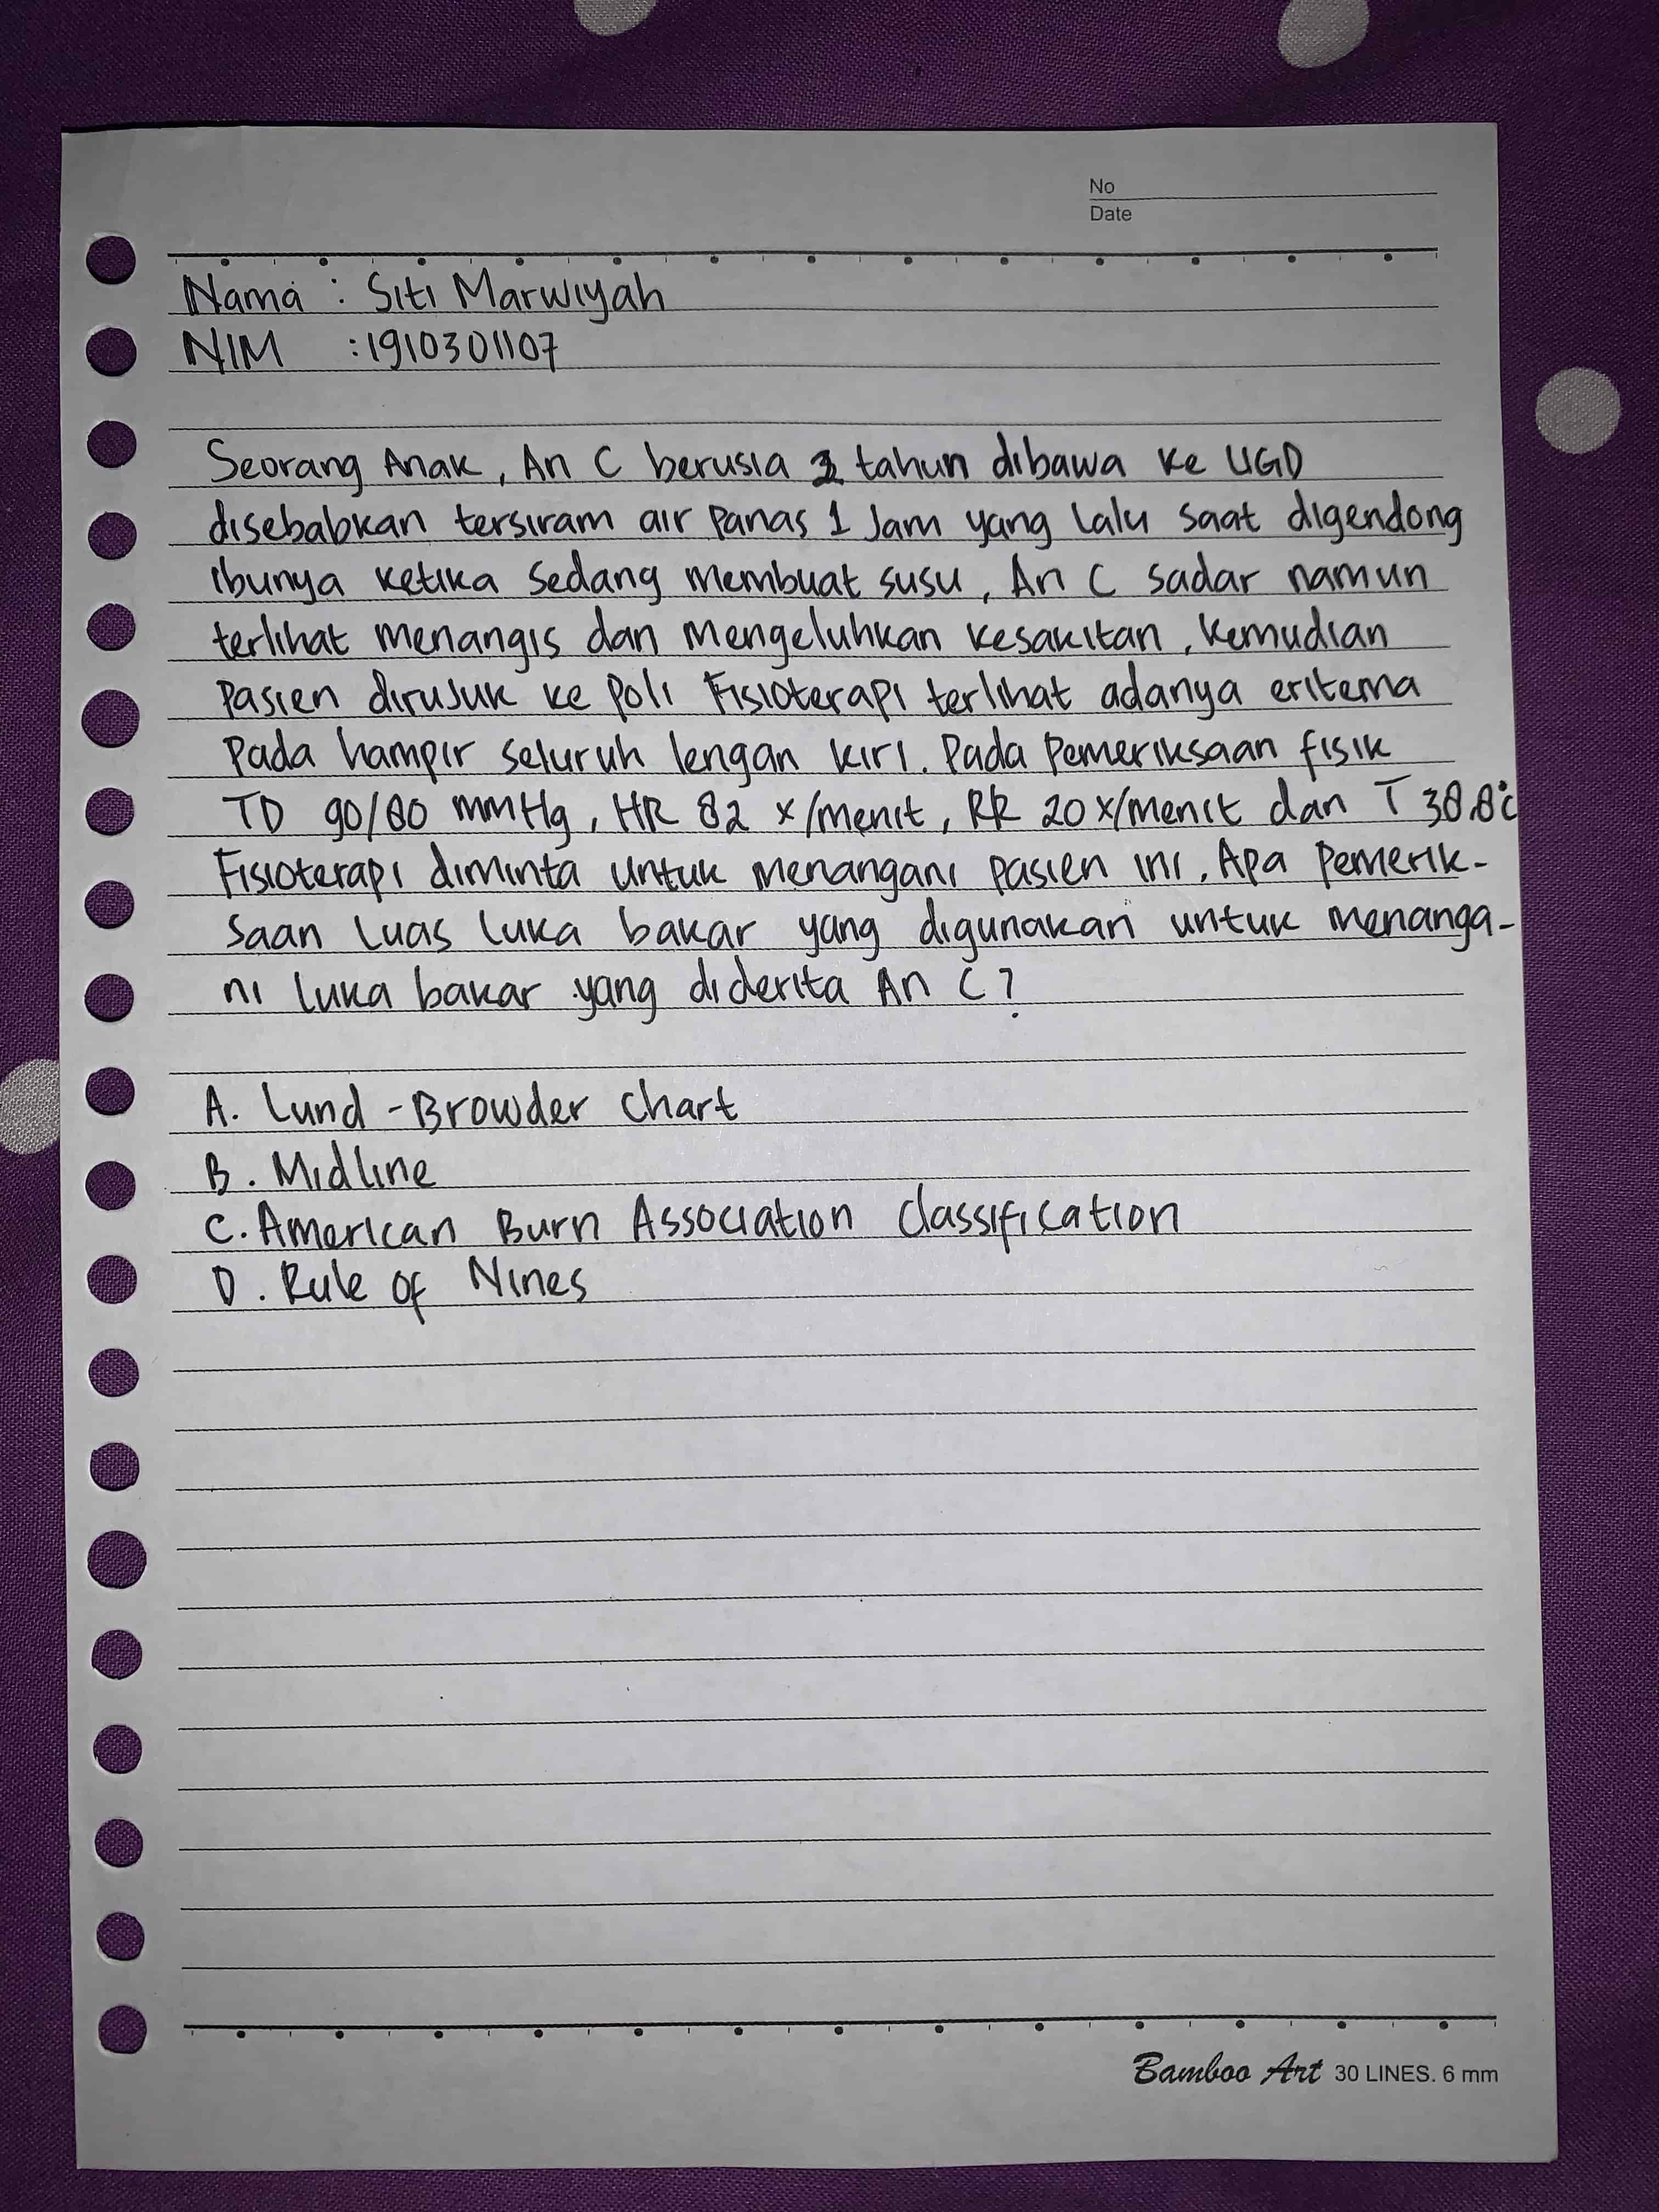 No
Date
Nama : Siti Marwiyah
NIM : 1910301107
Seorang Anak, An C berusia tahun dibawa ke UGD
disebabkan tersiram air panas 1 Jam yang lalu saat digendong
ibunya ketika sedang membuat susu, An C sadar namun
terlihat menangis dan mengeluhkan kesakitan, kemudian
pasien dirujuk ke poli Fisioterapi terlihat adanya eritema
pada hampir seluruh lengan kiri. Pada pemeriksaan fisik
TD mmHg, HR 82 x/menit, RR 20x/menit dan T 38.8°C
Fisioterapi diminta untuk menangani pasien ini. Apa pemerik-
saan luas luka bakar yang digunakan untuk menanga-
ni luka bakar yang diderita An C?
A. Lund - Browder chart
B. Midline
C. American Burn Association classification
D. Rule of Nines
Bamboo Art 30 LINES. 6 mm